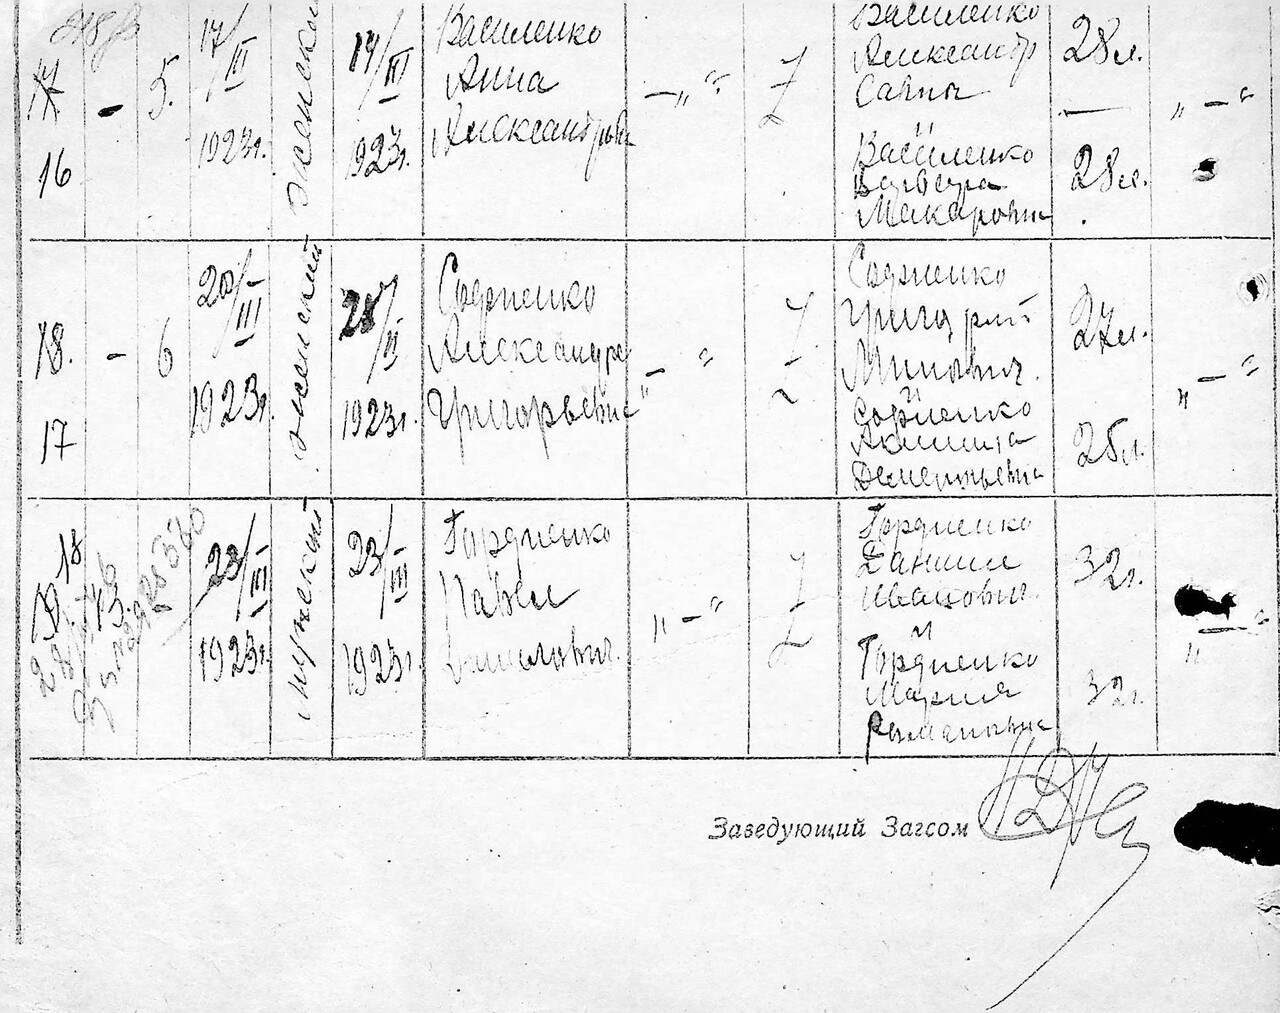 17
16
-
5.
17/III
1923г.
Женский
17/III
1923г.
Василенко
Анна
Александровна
— „ “
Василенко
Александр
Саввич
и
Василенко
Макаровна
28 л.
—
28 л.
„ — “
18.
17
-
6
20/III
1923г.
Женский
1923г.
Гордиенко
Александра
Григорьевна
„ — “
Гордиенко
Григорий
Минович.
и
Гордиенко
Акилина
Дементьевна
27 л.
25 л.
„ — “
18
23/III
1923г.
Мужской
23/III
1923г.
Гордиенко
Павел
Данилович.
„ — “
Гордиенко
Даниил
Иванович.
и
Гордиенко
Мария
Романовна
32 г.
32 г.
„ — “
Заведующий Загсом